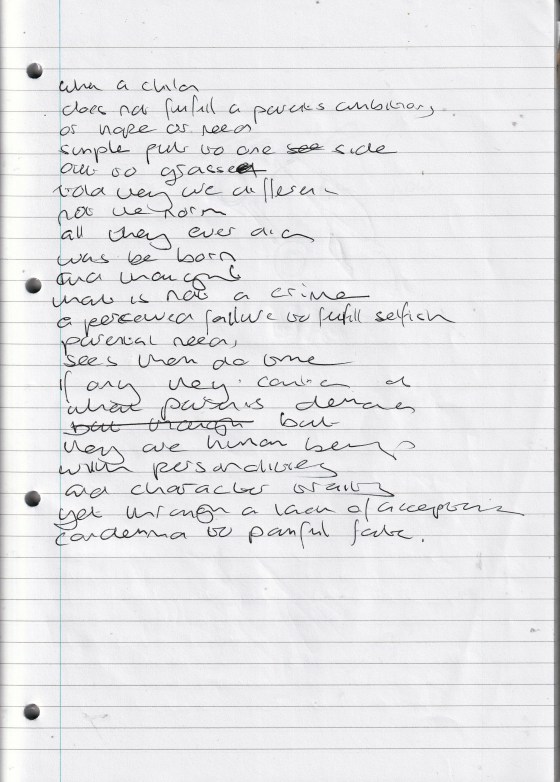 when a child
does not fulfill a parents ambitions
or hope or need
simple put to one see side
out to grass
told they are different
not the norm
all they ever did
was be born
and
that is not a crime
a perceived failure to fulfill selfish
parental needs
sees them do time
if any they
what parents demand
but through but
they are human beings
with personalities
and character traits
yet through a lack of acceptance
condemnd to painful fate.